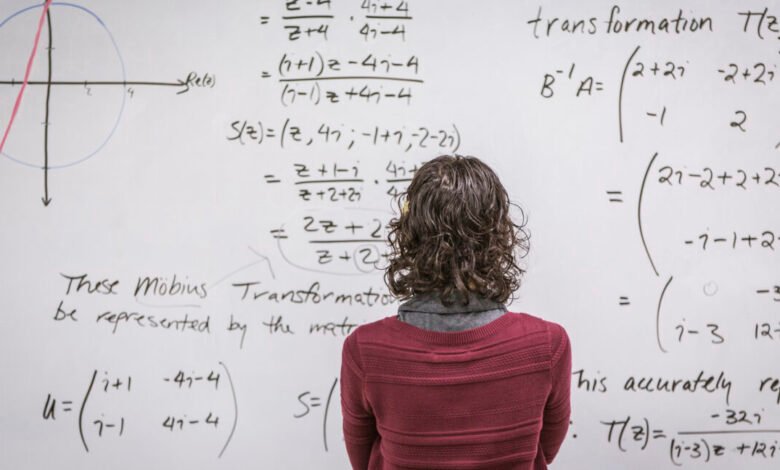 z-4/z+4 · 4i+4/4i-4
= (i+1)z-4i-4/(i-1)z+4i-4
S(z)=(z, 4i; -1+i, -2-2i)
= z+1-i/z+2+2i · 4i
= 2z+2/z+2
These Möbius Transformation
be represented by the matri
U = (i+1 -4i-4
i-1 4i-4)
S = (
Re(z)
2 4
transformation T(z)
B⁻¹A = (2+2i -2+2i
-1 2
= (2i-2+2+2
-i-1+2
= (
i-3 12
This accurately re
T(z) = -32i/(i-3)z+12i